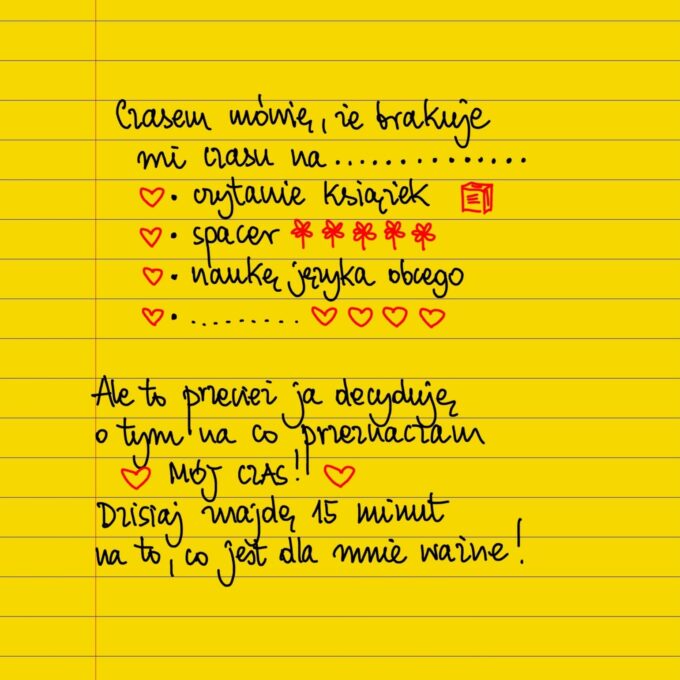 Czasem mówię, że brakuje
mi czasu na ...............
• czytanie książek
• spacer
• naukę języka obcego
• .........
Ale to przecież ja decyduję
o tym na co przeznaczam
MÓJ CZAS!
Dzisiaj znajdę 15 minut
na to, co jest dla mnie ważne!